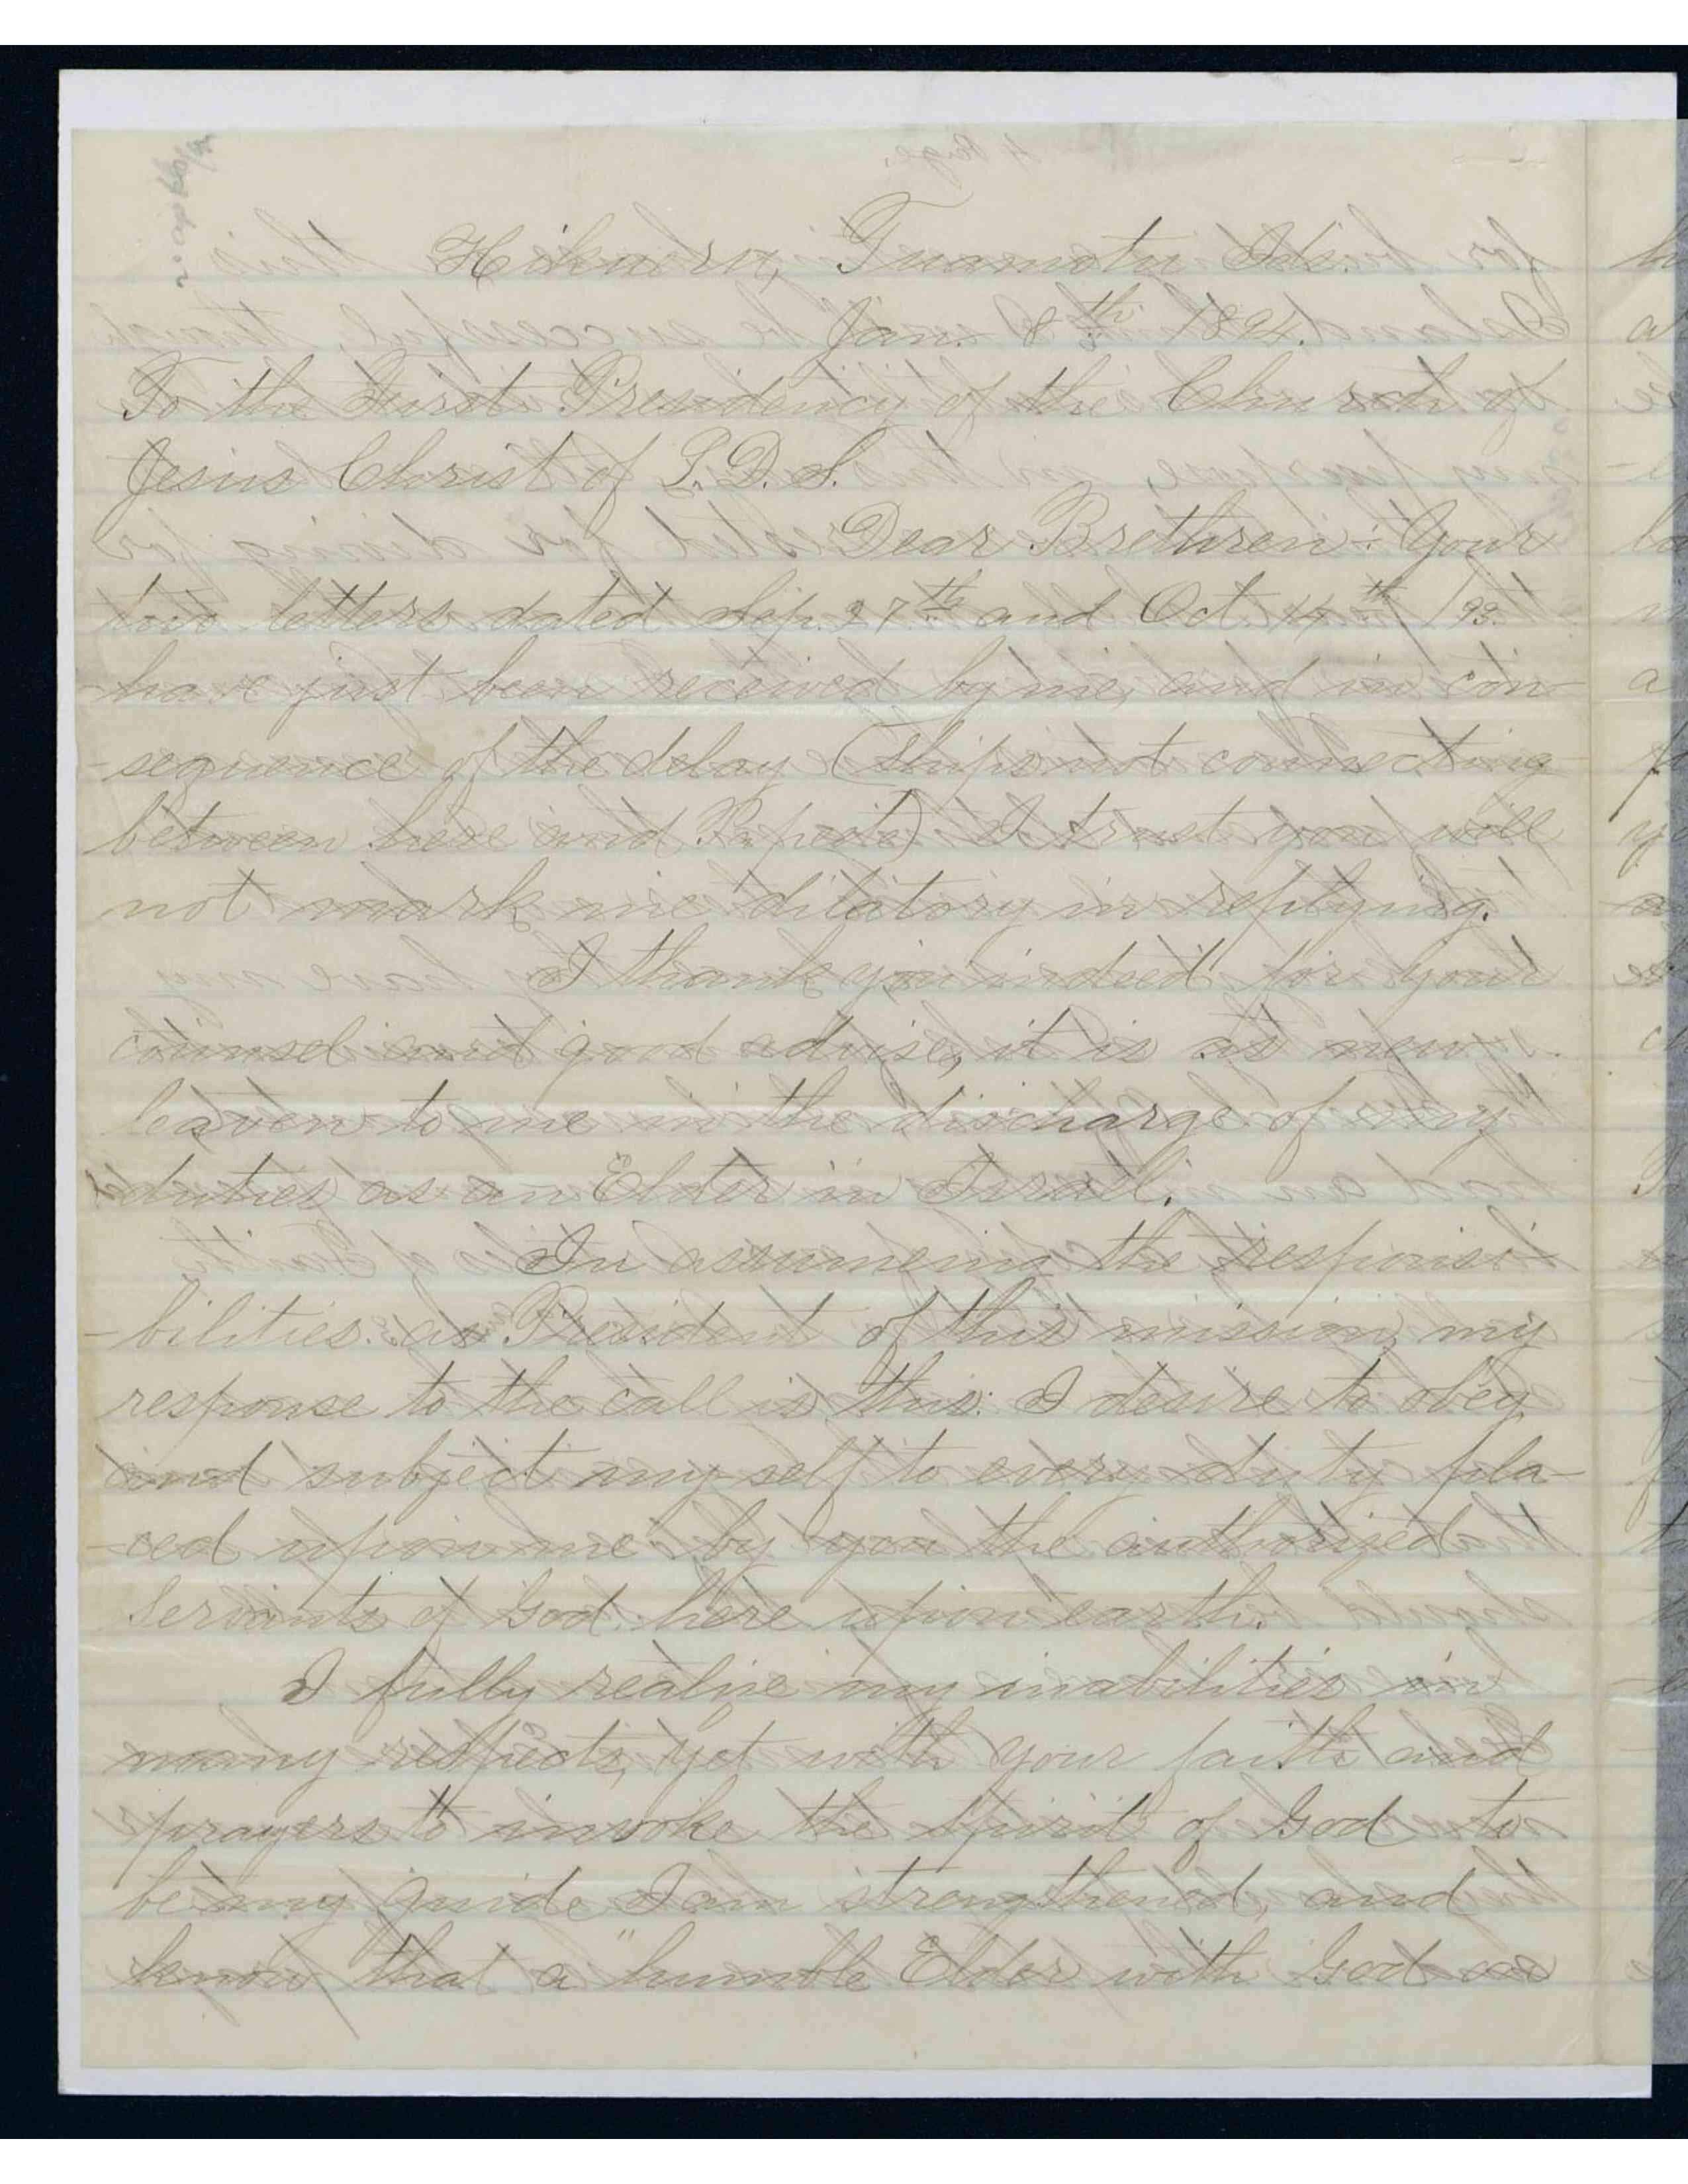 Hikueru, Tuamotu Isls.
Jan. 8th 1894.
To the First Presidency of the Church of
Jesus Christ of L.D.S.
Dear Brethren: Your
two letters dated Sep. 27th and Oct 14th /93.
have just been received by me, and in con-
-sequence of the delay (ships not connecting
between here and Papeete) I trust you will
not mark me dilatory in replying.
I thank you indeed for your
counsel and good advise, it is as new
leaven to me in the discharge of my
duties as an Elder in Israel.
In assumeing the responsi-
-bilities as President of this mission, my
response to the call is this: I desire to obey
and subject my-self to every duty pla-
-ced upon me by you the authorized
Servants of God here upon earth.
I fully realise my inabilities in
many respects, yet with your faith and
prayers to invoke the Spirit of God to
be my guide I am strengthened, and
know that a "humble Elder with God as